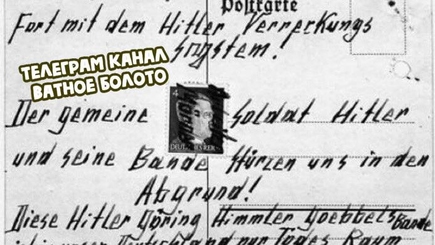 Postkarte
Fort mit dem Hitler Verreckungs
system!
ТЕЛЕГРАМ КАНАЛ
ВАТНОЕ БОЛОТО
Der gemeine Soldat Hitler
und seine Bande stürzen uns in den
Abgrund!
Diese Hitler Göring Himmler Goebbels Bande
ist in unser Deutschland nur Todes Raum